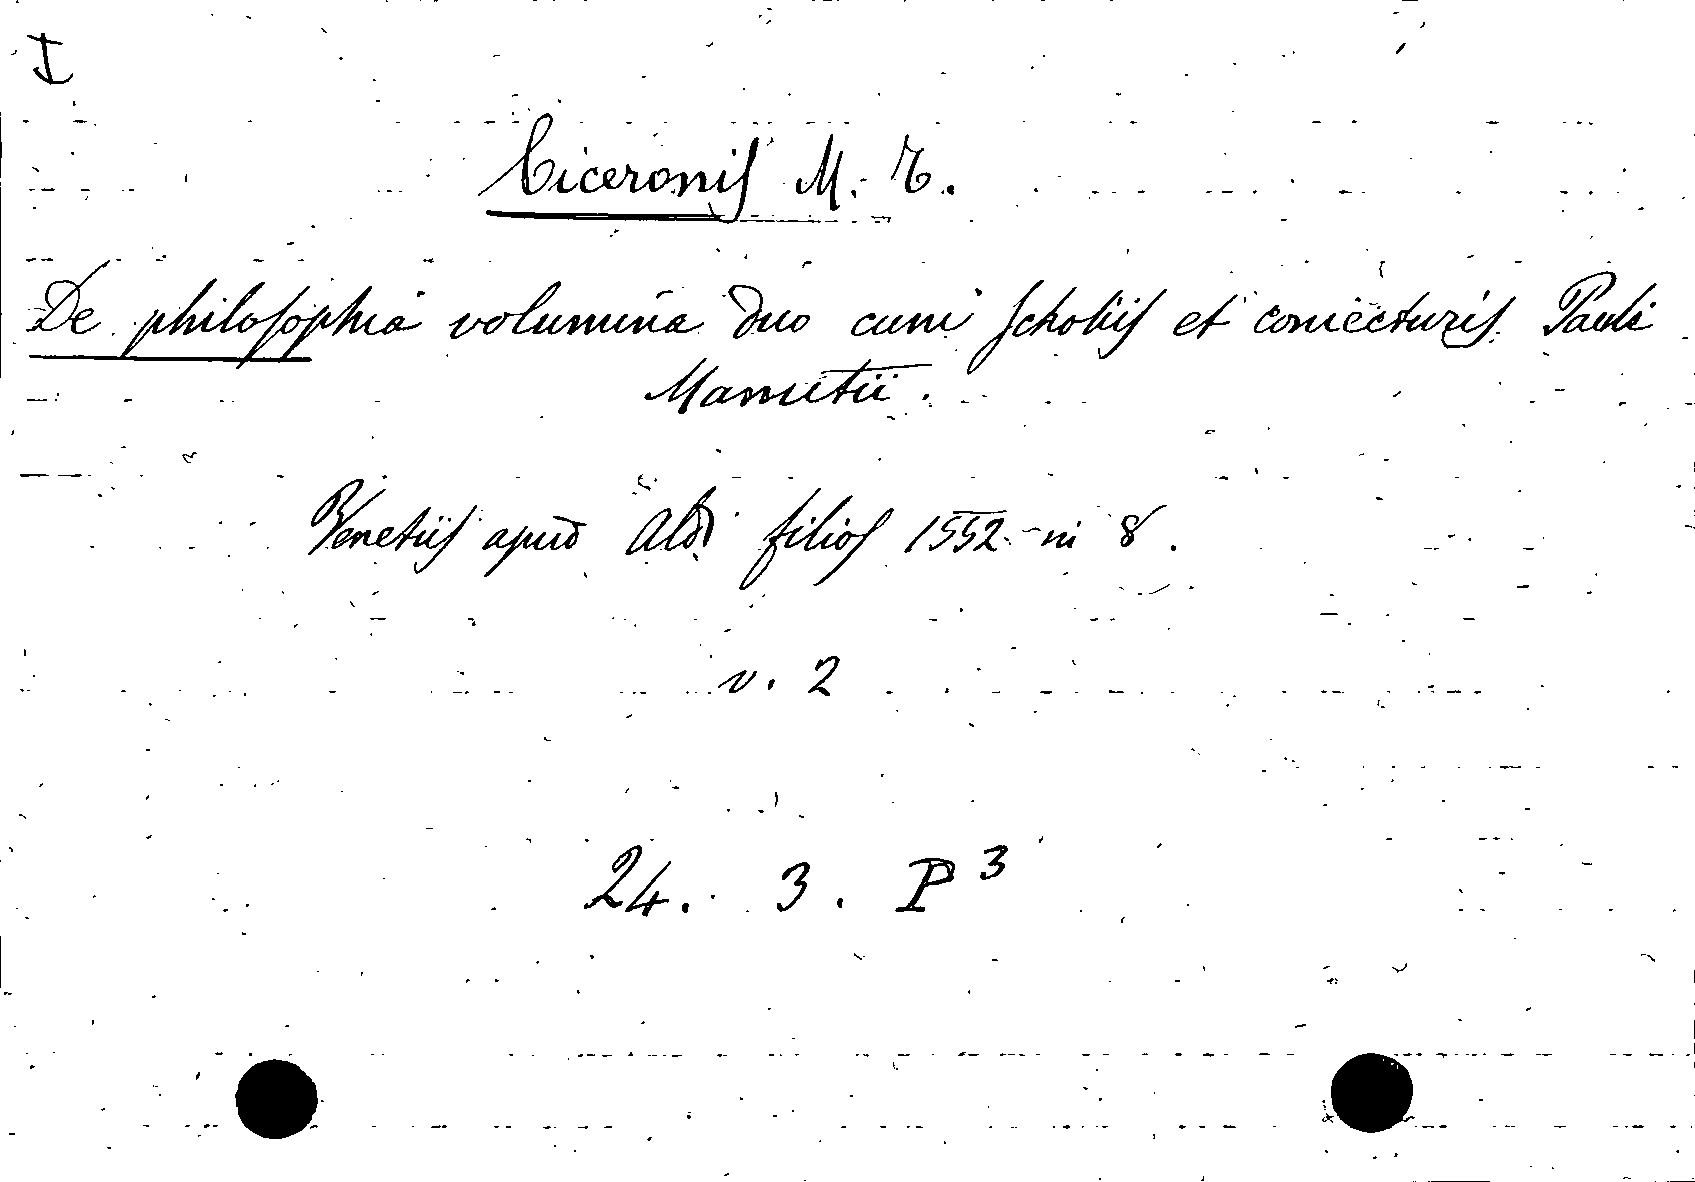 I
Ciceronis M. T.
De philosophia volumina duo cum scholiis et coniecturis Pauli
Manutii.
Venetiis apud Aldi filios 1552 in 8.
v. 2
24. 3. P 3